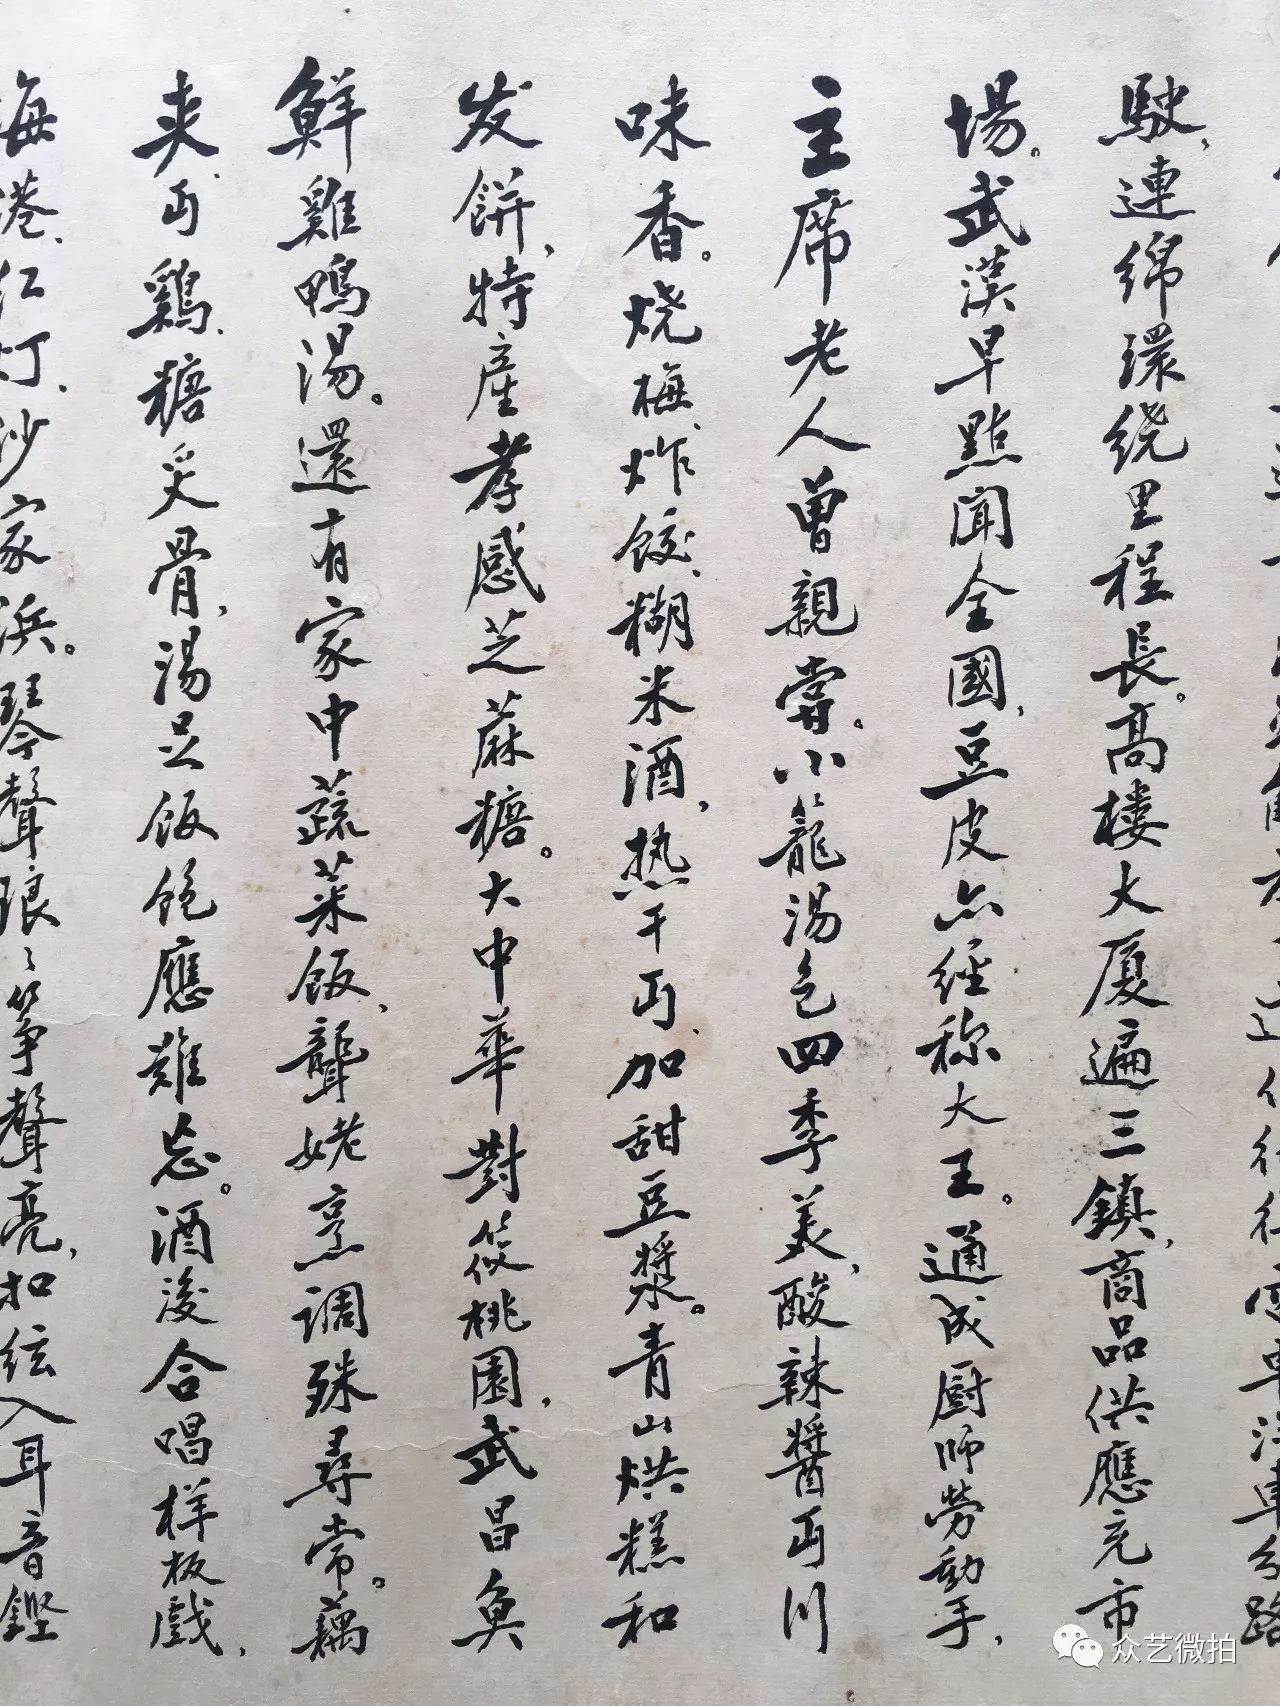 駛，連綿環绕里程長。高楼大厦遍三鎮，商品供應充市
場。武漢早點聞全國，豆皮亦經称大王。通成厨師勞动手，
主席老人曾親嘗。小籠湯包四季美，酸辣醬丏川
味香。烧梅、炸饺、糊米酒，热干丏、加甜豆漿。青山烘糕和
发餅，特產孝感芝蔴糖。大中華對筱桃園，武昌魚
鮮雞鴨湯。還有家中蔬菜飯，龔姥烹调殊尋常。藕
夹、丏鷄、糖炙骨，湯足饭飽應難忘。酒後合唱样板戲，
海港、红灯、沙家浜。琴聲琅々筝聲亮，扣絃入耳音鏗
众艺微拍